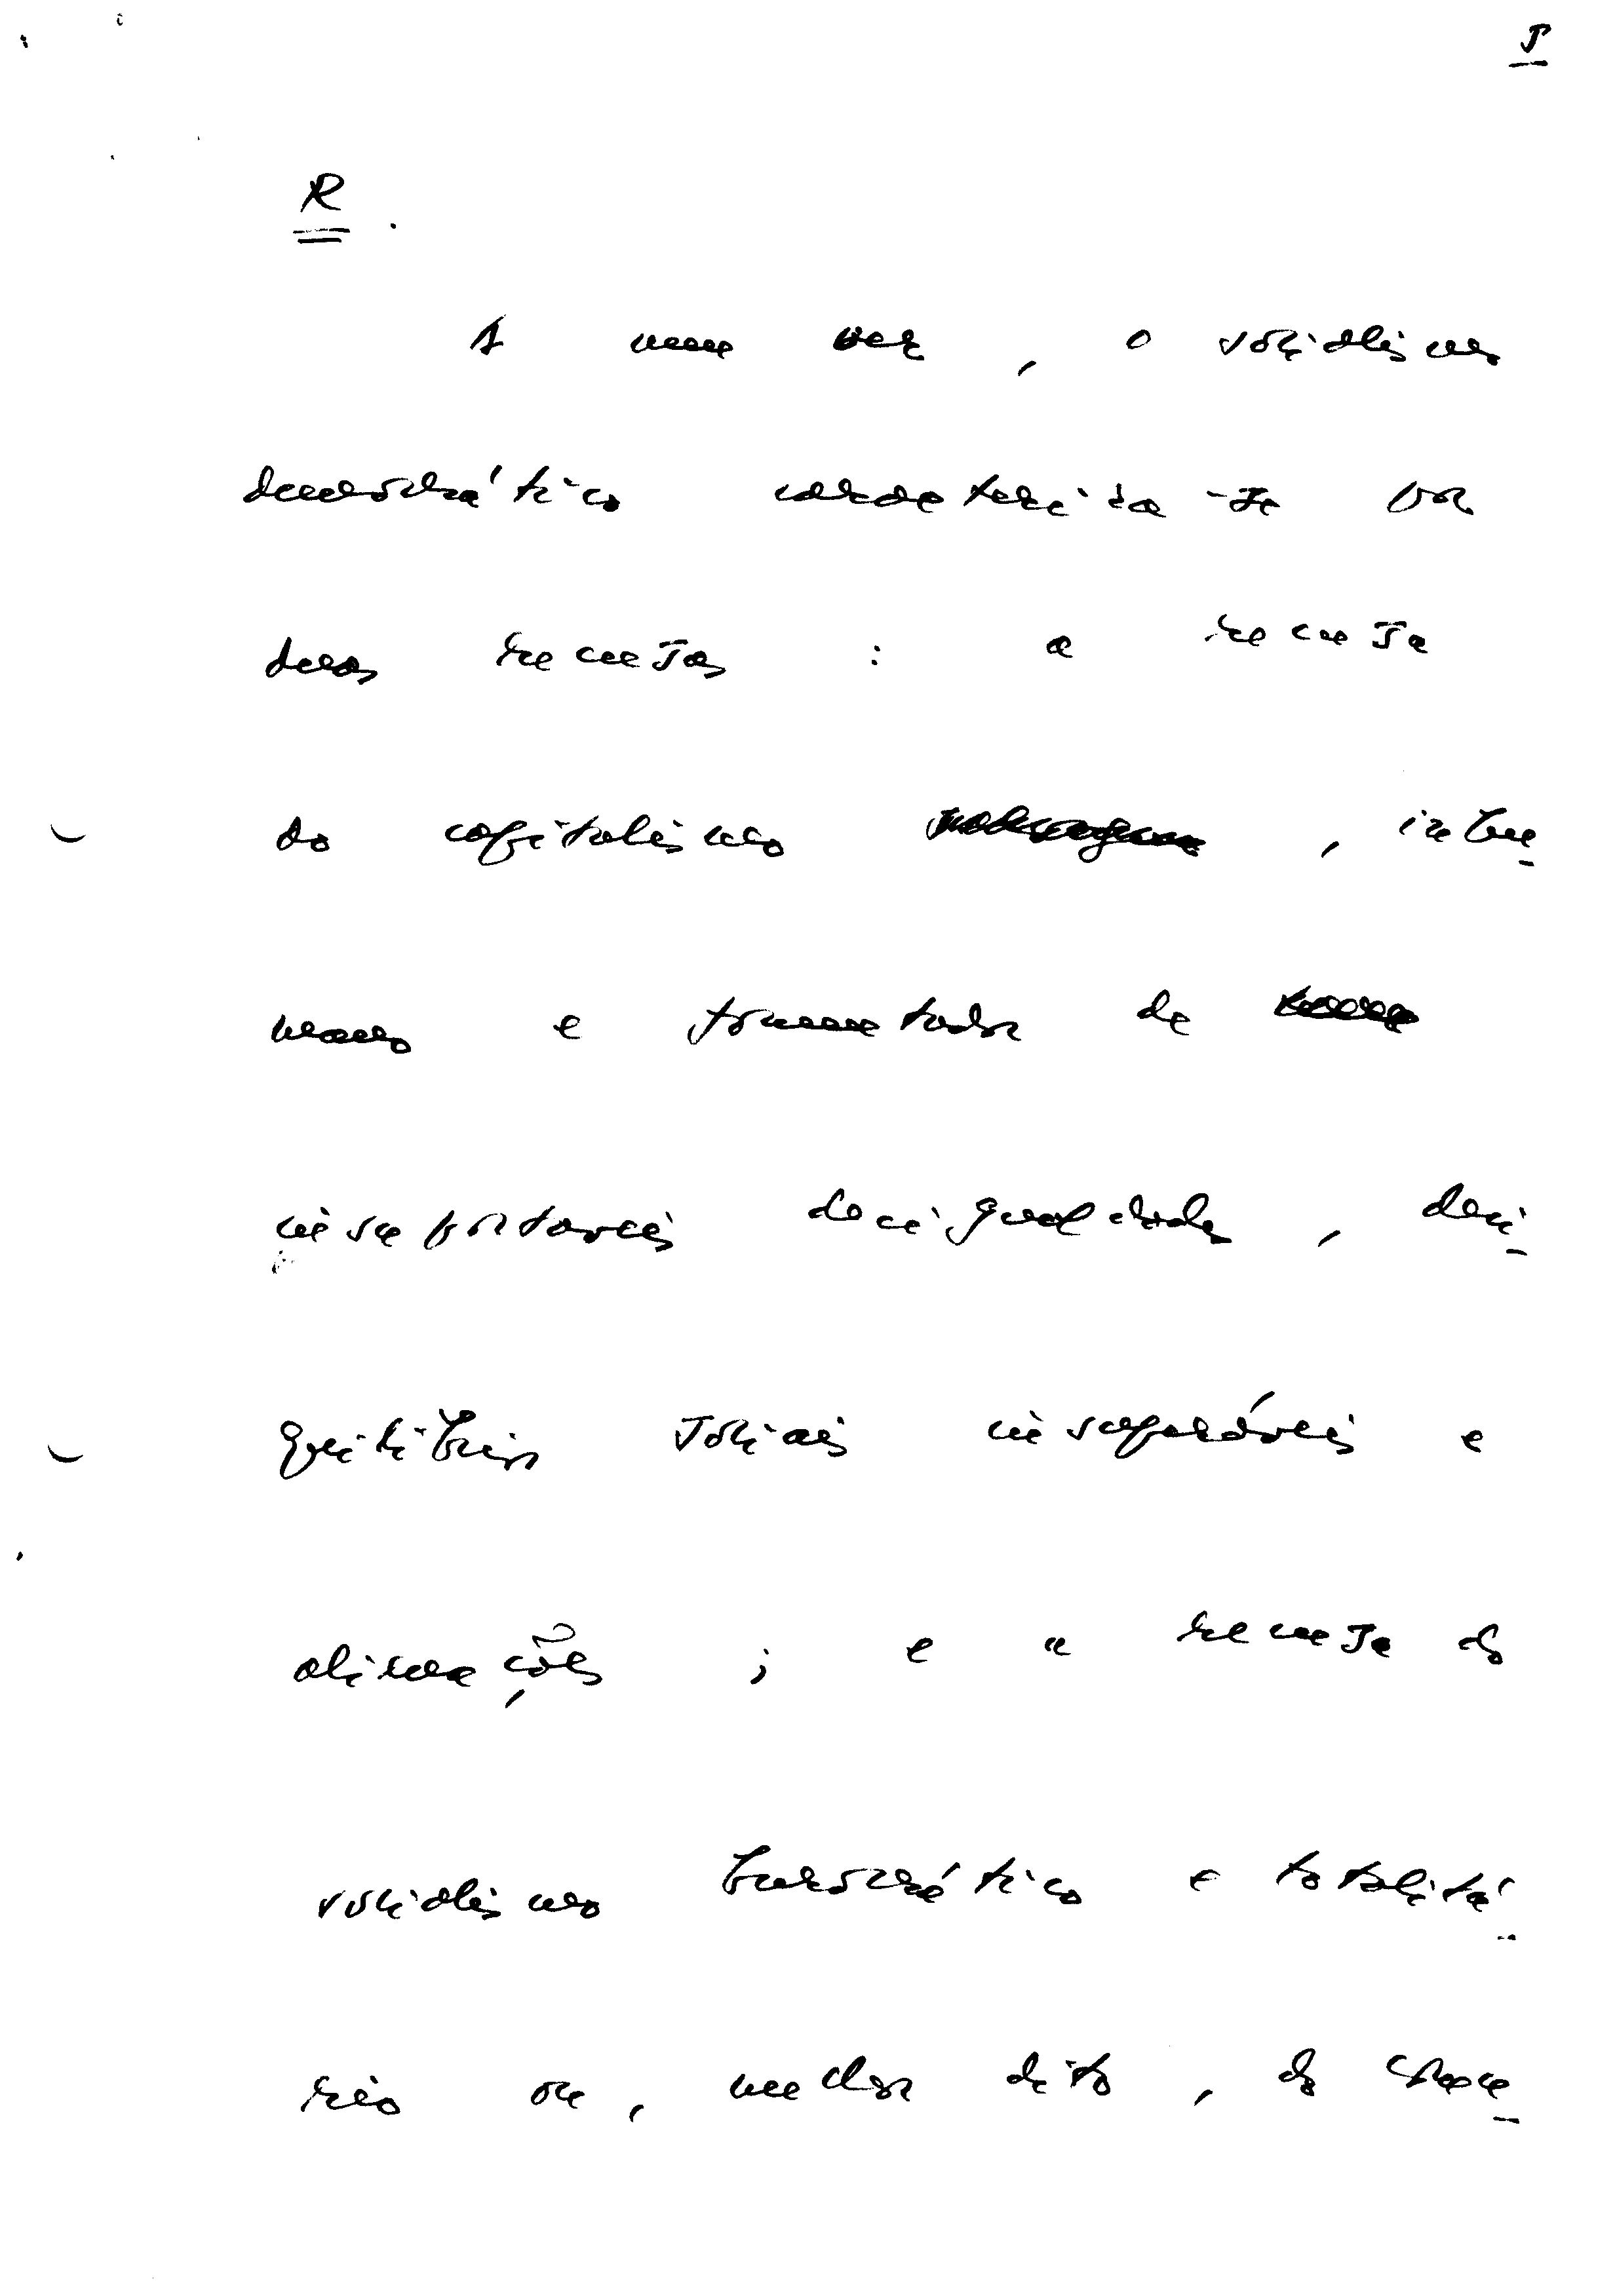 5
R.
A meu ver, o socialismo
democrático caracteriza-se por
duas recusas: a recusa
do capitalismo, inhu-
mano e fomentador de
insuportáveis desigualdades, dese-
quilíbrios sociais insuperáveis e
alienações; e a recusa do
socialismo burocrático e totalitá-
rio ou, melhor dito, do comu-